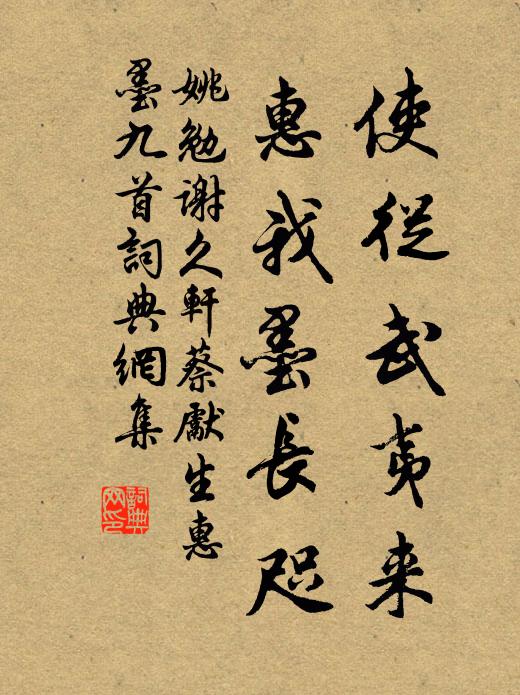 使從武夷来
惠我墨長咫
姚勉謝久軒蔡獻生惠
墨九首詞典網集
詞典网印